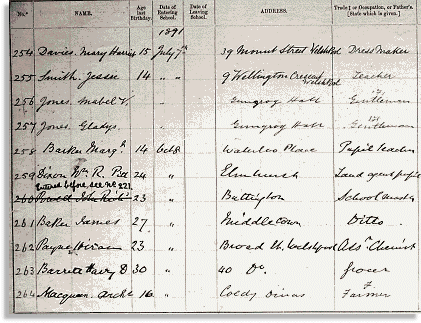 No. NAME. Age last Birthday. Date of Entering School. Date of Leaving School. ADDRESS. Trade or Occupation, or Father's. [State which is given.]
1891
254 Davies. Mary Harriet 15 July 7th 39 Mount Street Welshpool Dressmaker
255 Smith. Jessie 14 " 9 Wellington Crescent Welshpool Teacher
256 Jones. Mabel V. " Gungrog Hall Gentleman
257 Jones. Gladys. " Gungrog Hall Gentleman
258 Barker Margt 14 Oct 8 Waterloo Place Pupil teacher
259 Dixon Wm. R. 24 " Elmhurst Land agent pupil
Entered before, see No 221.
260 23 " Buttington School master
261 Baker James 27 " Middletown Ditto
262 Payne Hiram 23 " Broad St. Welshpool Asst Chemist
263 Barrett Harry D 30 " 40 Do. Grocer
264 Macqueen Archd 16 " Coedy Dinas Farmer